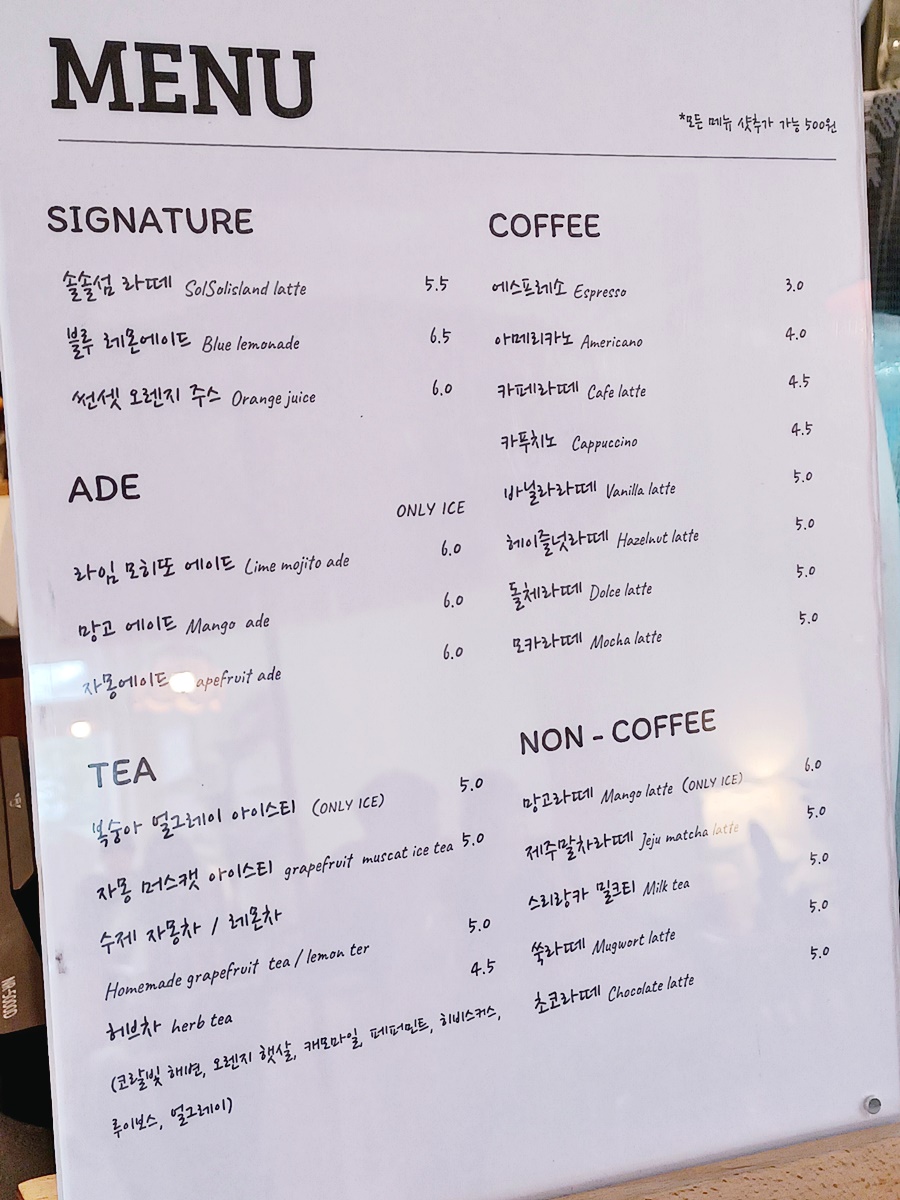 MENU
*모든 메뉴 샷추가 가능 500원
SIGNATURE
솔솔섬 라떼 SolSolisland latte 5.5
블루 레몬에이트 Blue lemonade 6.5
썬셋 오렌지 주스 Orange juice 6.0
ADE
ONLY ICE
라임 모히또 에이트 Lime mojito ade 6.0
망고 에이트 Mango ade 6.0
자몽에이트 apefruit ade 6.0
TEA
복숭아 얼그레이 아이스티 (ONLY ICE) 5.0
자몽 머스캣 아이스티 grapefruit muscat ice tea 5.0
수제 자몽차 / 레몬차
Homemade grapefruit tea / lemon ter 5.0
허브차 herb tea 4.5
(코랄빛 해변, 오렌지 햇살, 캐모마일, 페퍼민트, 히비스커스,
루이보스, 얼그레이)
COFFEE
에스프레소 Espresso 3.0
아메리카노 Americano 4.0
카페라떼 Cafe latte 4.5
카푸치노 Cappuccino 4.5
바닐라라떼 Vanilla latte 5.0
헤이즐넛라떼 Hazelnut latte 5.0
돌체라떼 Dolce latte 5.0
모카라떼 Mocha latte 5.0
NON - COFFEE
망고라떼 Mango latte (ONLY ICE) 6.0
제주말차라떼 Jeju matcha latte 5.0
스리랑카 밀크티 Milk tea 5.0
쑥라떼 Mugwort latte 5.0
초코라떼 Chocolate latte 5.0